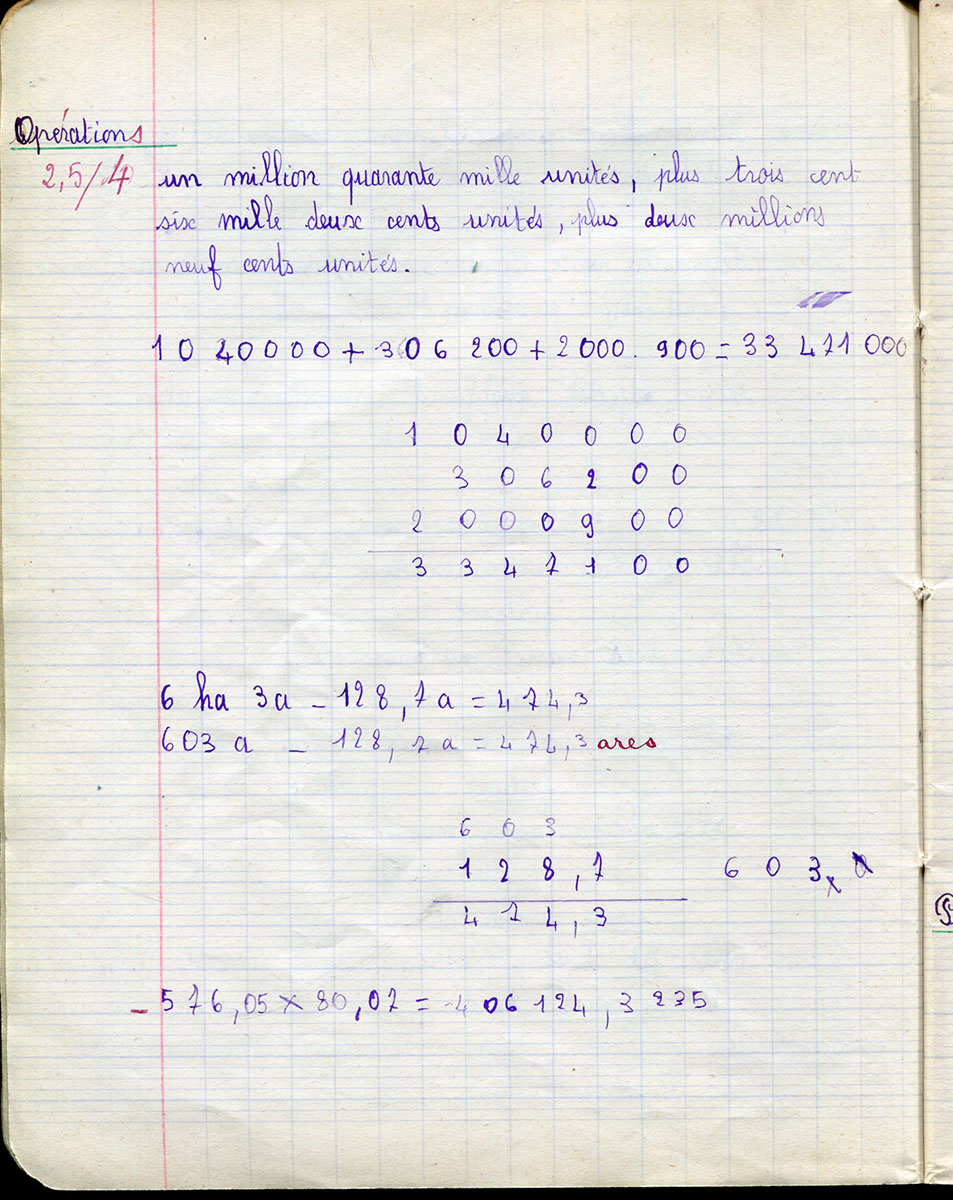 Opérations
2,5/4 un million quarante mille unités, plus trois cent
six mille deux cents unités, plus deux millions
neuf cents unités.
1040000 + 306 200 + 2000.900 = 33 471 000
1 0 4 0 0 0 0
3 0 6 2 0 0
2 0 0 0 9 0 0
3 3 4 7 1 0 0
6 ha 3a - 128,7a = 474,3
603 a - 128,7a = 474,3 ares
6 0 3
1 2 8,7 6 0 3
4 7 4,3
- 576,05 × 80,07 = 406 124,3 235